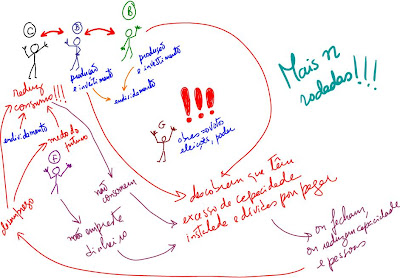 C
D
B
reduz
consumo!!!
produção
e investimento
produção
e investimento
endividamento
endividamento
medo do
futuro
Mais n
rodadas!!!
!!!
G
obras → votos
eleições, poder
F
desemprego
não consomem
não empresta
dinheiro
descobrem que têm
excesso de capacidade
instalada e dívidas por pagar
ou fecham,
ou reduzem capacidade
e pessoas